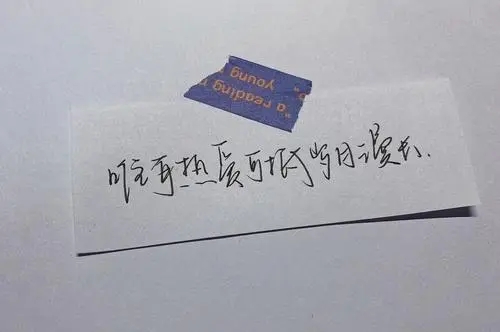 "a reading
young
唯有热爱可抵岁月漫长.